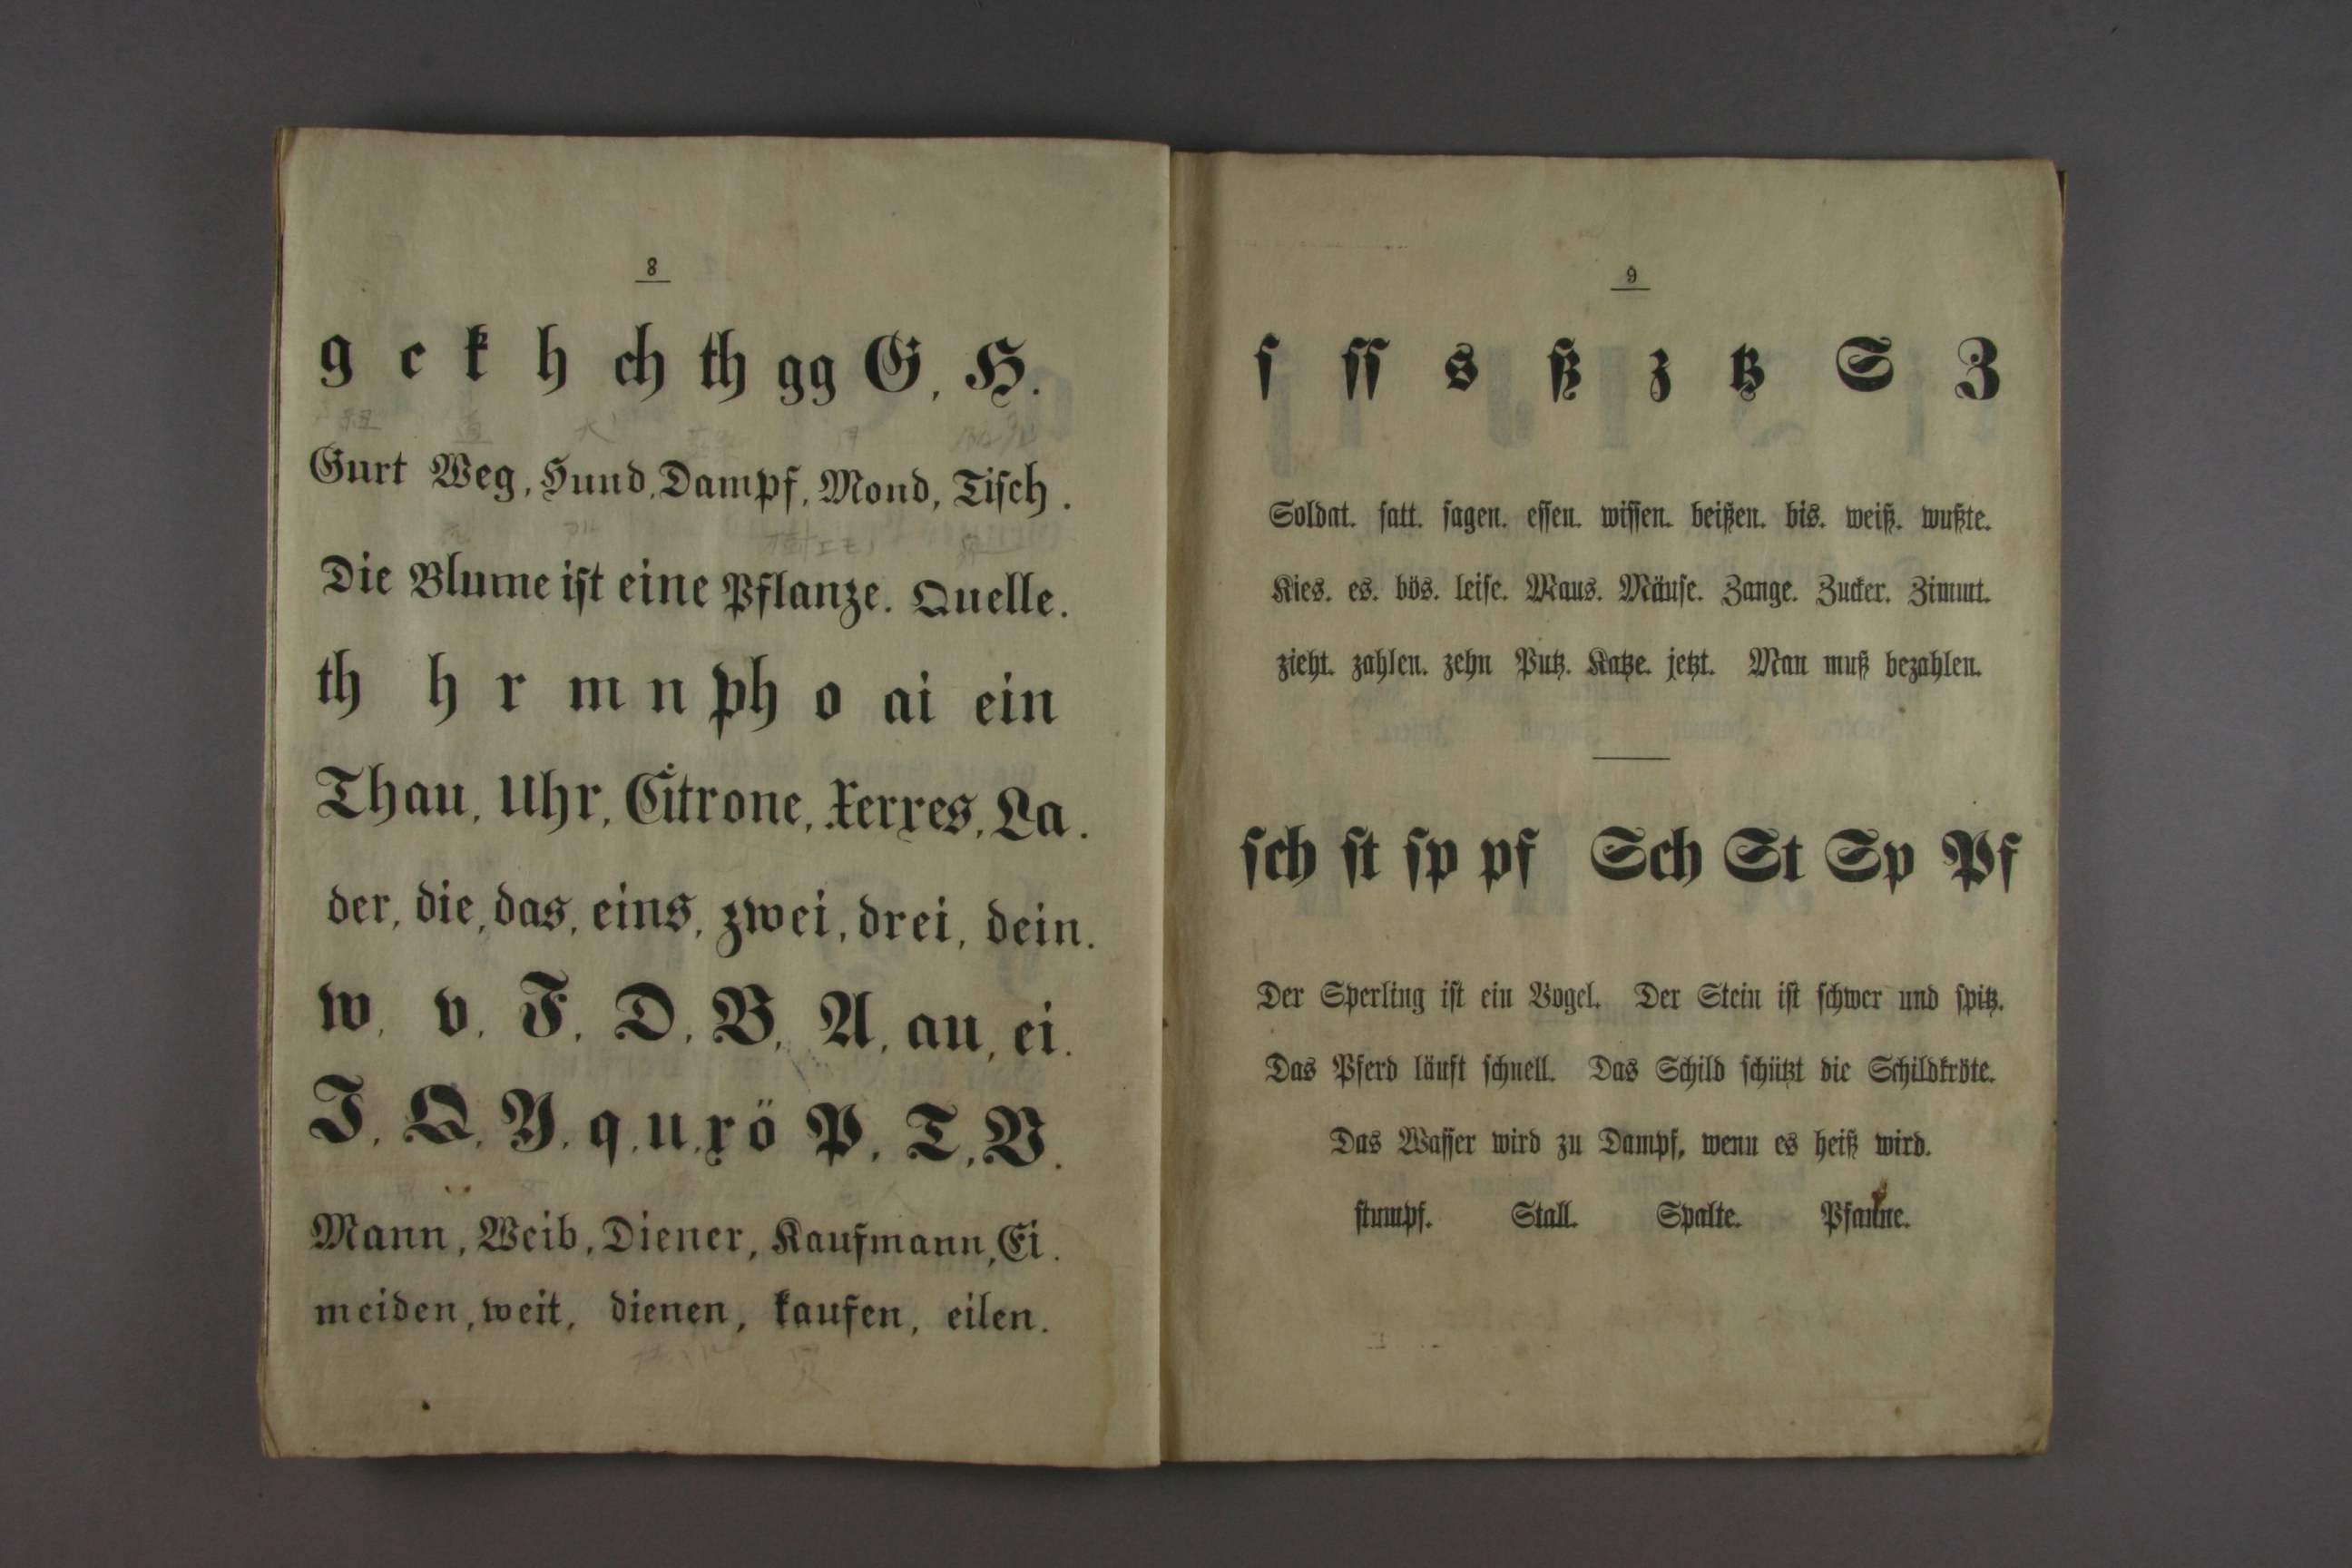 8
g c k h ch th gg G, H.
Gurt Weg, Hund, Dampf, Mond, Tiſch.
Die Blume iſt eine Pflanze. Quelle.
th h r m n ph o ai ein
Thau, Uhr, Citrone, Xerxes, La.
der, die, das, eins, zwei, drei, dein.
w, v, F, D, B, A, au, ei.
J, Q, Y, q, u, x ö P, T, V.
Mann, Weib, Diener, Kaufmann, Ei.
meiden, weit, dienen, kaufen, eilen.
9
ſ ſſ s ß z tz S Z
Soldat. ſatt. ſagen. eſſen. wiſſen. beißen. bis. weiß. wußte.
Kies. es. bös. leiſe. Maus. Mäuſe. Zange. Zucker. Zimmt.
zieht. zahlen. zehn Putz. Katze. jetzt. Man muß bezahlen.
ſch ſt ſp pf Sch St Sp Pf
Der Sperling iſt ein Vogel. Der Stein iſt ſchwer und ſpitz.
Das Pferd läuft ſchnell. Das Schild ſchützt die Schildkröte.
Das Waſſer wird zu Dampf, wenn es heiß wird.
ſtumpf. Stall. Spalte. Pfanne.